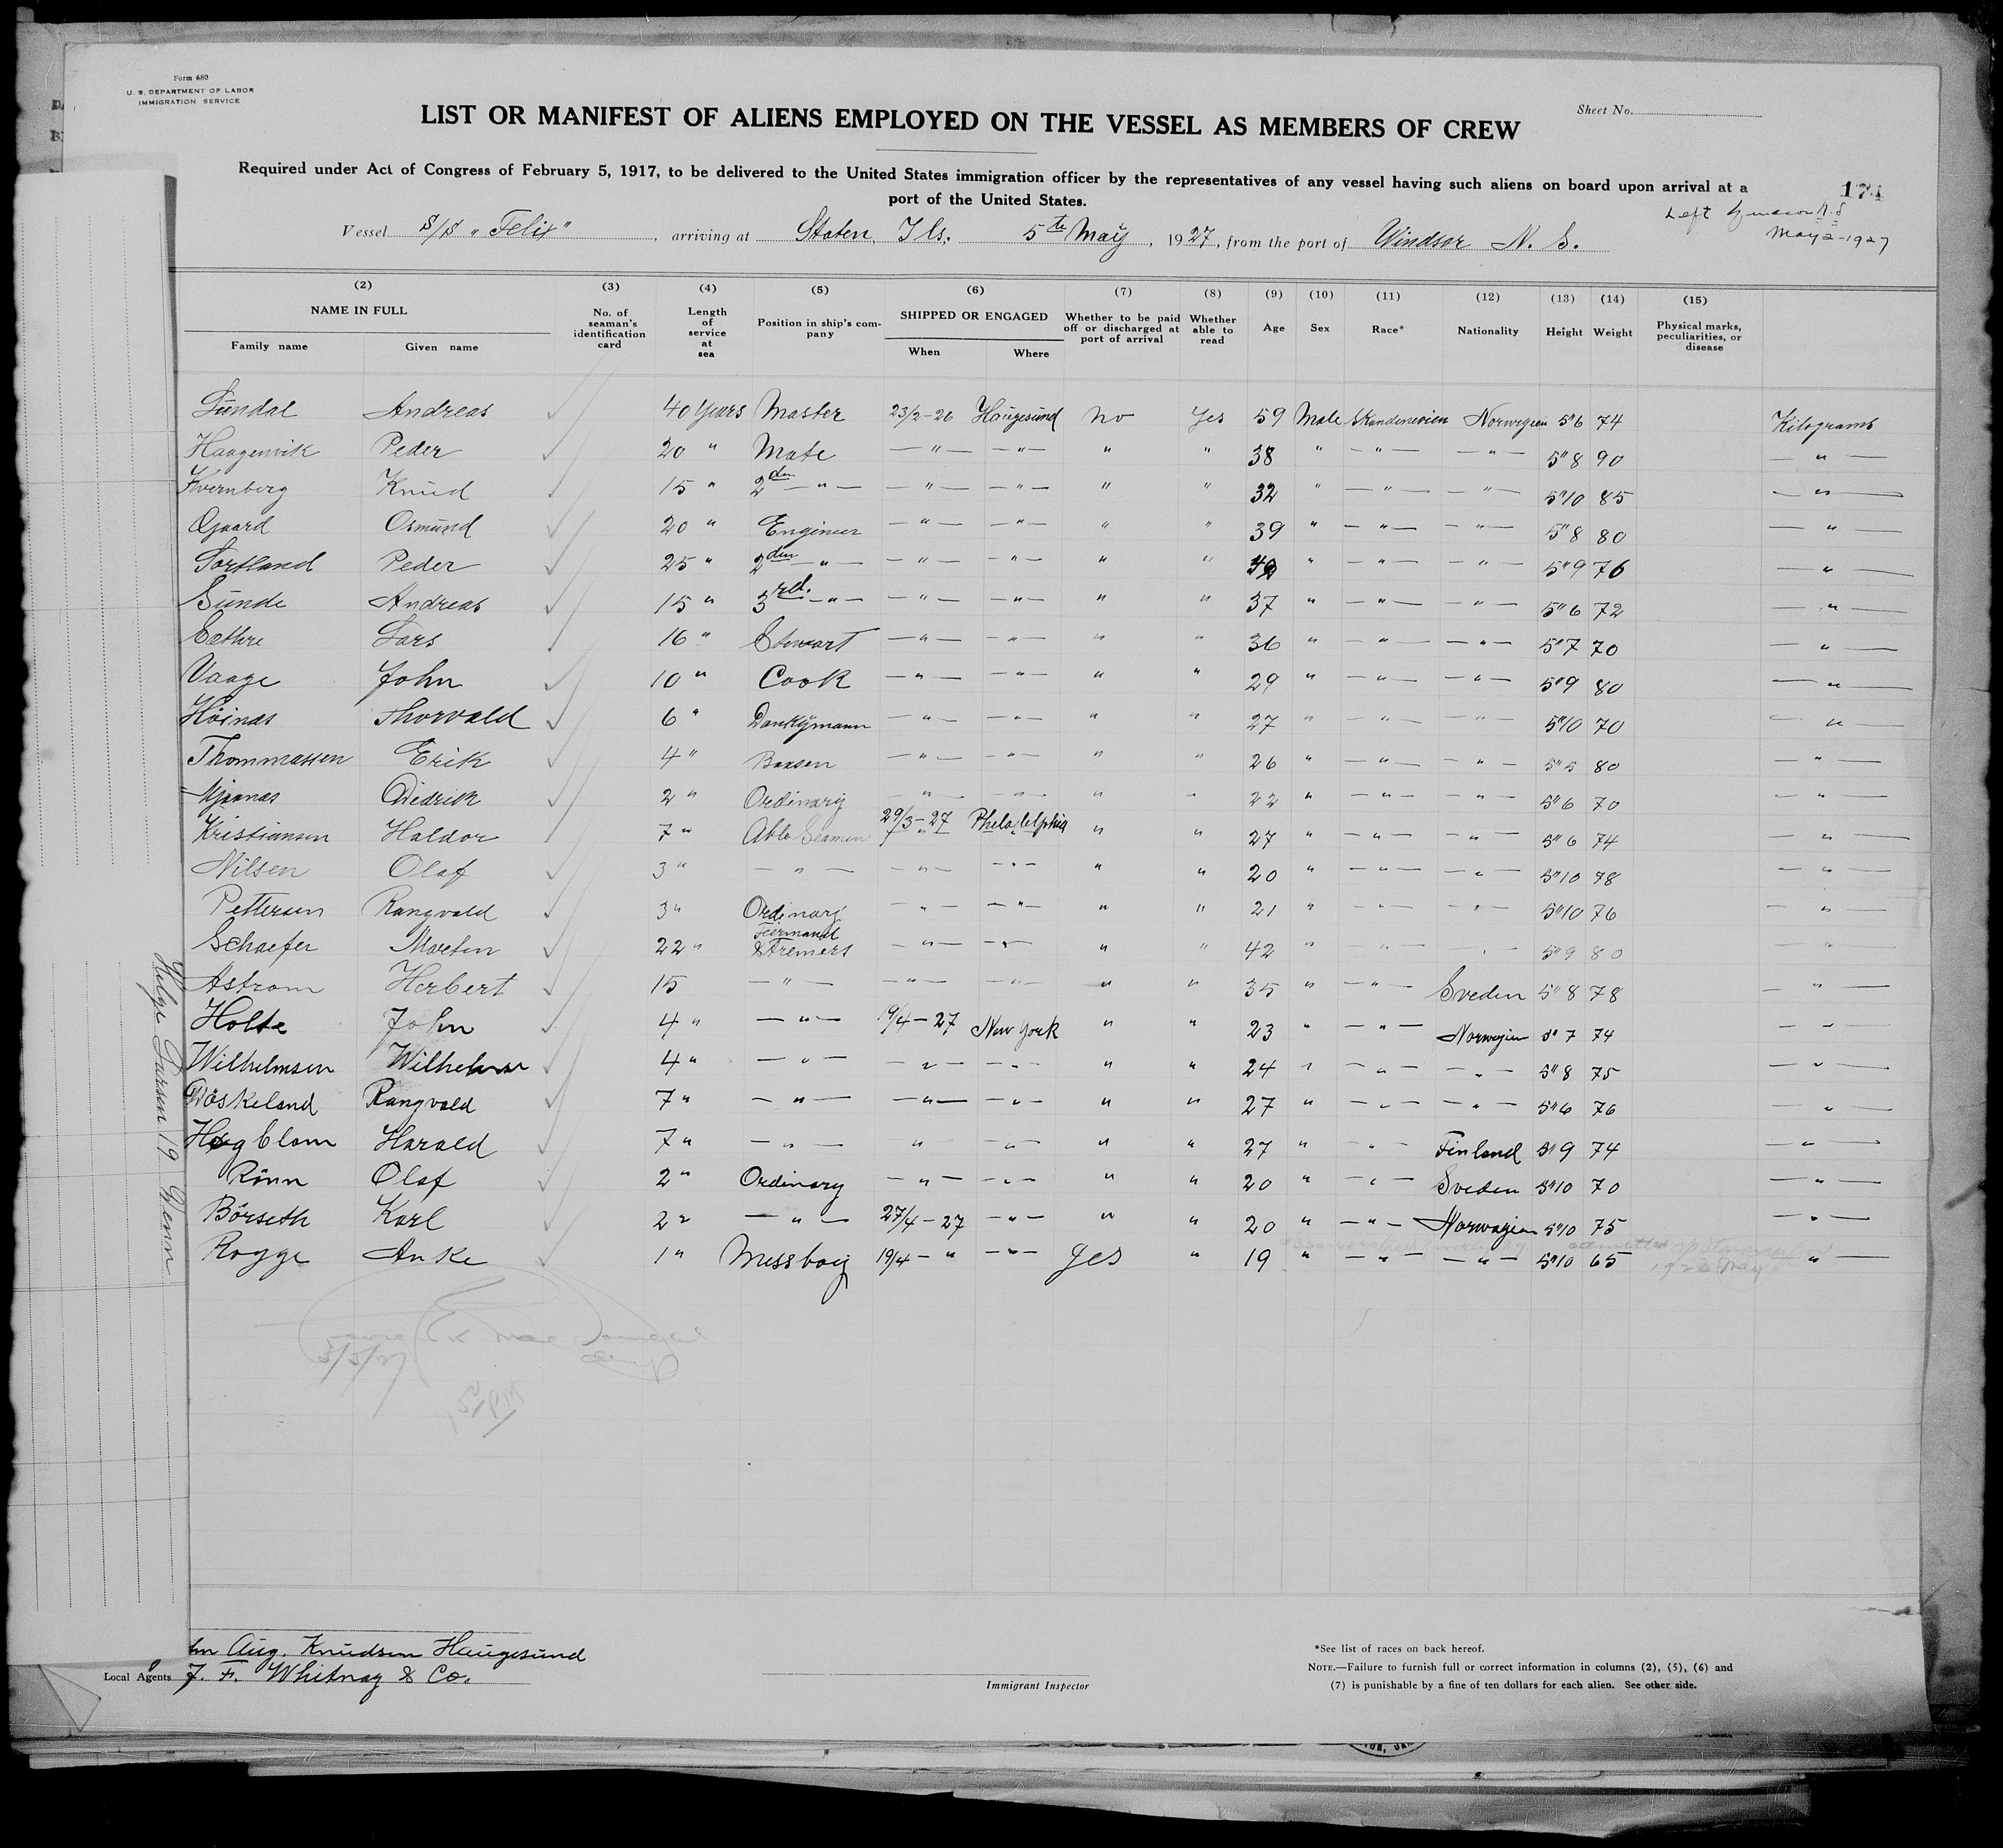 Form 680
U. S. DEPARTMENT OF LABOR
IMMIGRATION SERVICE
LIST OR MANIFEST OF ALIENS EMPLOYED ON THE VESSEL AS MEMBERS OF CREW
Sheet No.
Required under Act of Congress of February 5, 1917, to be delivered to the United States immigration officer by the representatives of any vessel having such aliens on board upon arrival at a
port of the United States.
174
Left Windsor N.S
May 2-1927
Vessel S/S „Felix" , arriving at Staten. Ils. 5th May , 1927, from the port of Windsor N. S.
(2) (3) (4) (5) (6) (7) (8) (9) (10) (11) (12) (13) (14) (15)
NAME IN FULL
Family name Given name
No. of seaman's identification card
Length of service at sea
Position in ship's company
SHIPPED OR ENGAGED
When Where
Whether to be paid off or discharged at port of arrival
Whether able to read
Age Sex Race* Nationality Height Weight
Physical marks, peculiarities, or disease
Sundal Andreas 40 Years Master 23/2-26 Haugesund No Yes 59 Male Skandinevien Norwegien 5"6 74 Kilograms
Haagenvik Peder 20 " Mate —"— —"— " " 38 " —"— —"— 5"8 90 —"—
Kvernberg Knud 15 " 2den —"— —"— —"— " " 32 " —"— —"— 5"10 85 —"—
Ogaard Osmund 20 " Engineer —"— —"— " " 39 " —"— —"— 5"8 80 —"—
Sortland Peder 25 " 2den —"— —"— —"— " " " —"— —"— 5"9 76 —"—
Sunde Andreas 15 " 3rd. —"— —"— —"— " " 37 " —"— —"— 5"6 72 —"—
Sæthre Lars 16 " Stewart —"— —"— " " 36 " —"— —"— 5"7 70 —"—
Vaage John 10 " Cook —"— —"— " " 29 " —"— —"— 5"9 80 —"—
Höinas Thorvald 6 " Donkymann —"— —"— " " 27 " —"— —"— 5"10 70 —"—
Thommassen Erik 4 " Baasen —"— —"— " " 26 " —"— —"— 5"5 80 —"—
Mjaanas Diedrik 2 " Ordinary —"— —"— " " 22 " —"— —"— 5"6 70 —"—
Kristiansen Haldor 7 " Able Seaman 29/3-27 Pheladelphia " " 27 " —"— —"— 5"6 74 —"—
Nilsen Olaf 3 " —"— —"— —"— " " 20 " —"— —"— 5"10 78 —"—
Pettersen Rangvald 3 " Ordinary —"— —"— " " 21 " —"— —"— 5"10 76 —"—
Schaefer Martin 22 " Feirmand & Tremers —"— —"— " " 42 " —"— " 5"9 80 —"—
Astrom Herbert 15 —"— —"— —"— " " 35 " —"— Sveden 5"8 78 —"—
Holte John 4 " —"— 19/4-27 New York " " 23 " —"— Norwegien 5"7 74 —"—
Wilhelmsen Wilhelm 4 " —"— —"— —"— " " 24 " —"— —"— 5"8 75 —"—
Röskeland Rangvald 7 " —"— —"— —"— " " 27 " —"— —"— 5"6 76 —"—
Hegblom Harald 7 " —"— " —"— " " 27 " —"— Finland 5"9 74 —"—
Rönn Olaf 2 " Ordinary —"— —"— " " 20 " —"— Sveden 5"10 70 —"—
Börseth Karl 2 " —"— 27/4-27 —"— " " 20 " —"— Norwegien 5"10 75 —"—
Rogge Anke 1 " Messboy 19/4-" —"— Yes " 19 " —"— —"— 5"10 65 " —
5/5/27
Helge Larsen 19
Aug. Knudsen Haugesund
Local Agents J. F. Whitnay & Co.
Immigrant Inspector
*See list of races on back hereof.
NOTE.—Failure to furnish full or correct information in columns (2), (5), (6) and
(7) is punishable by a fine of ten dollars for each alien. See other side.